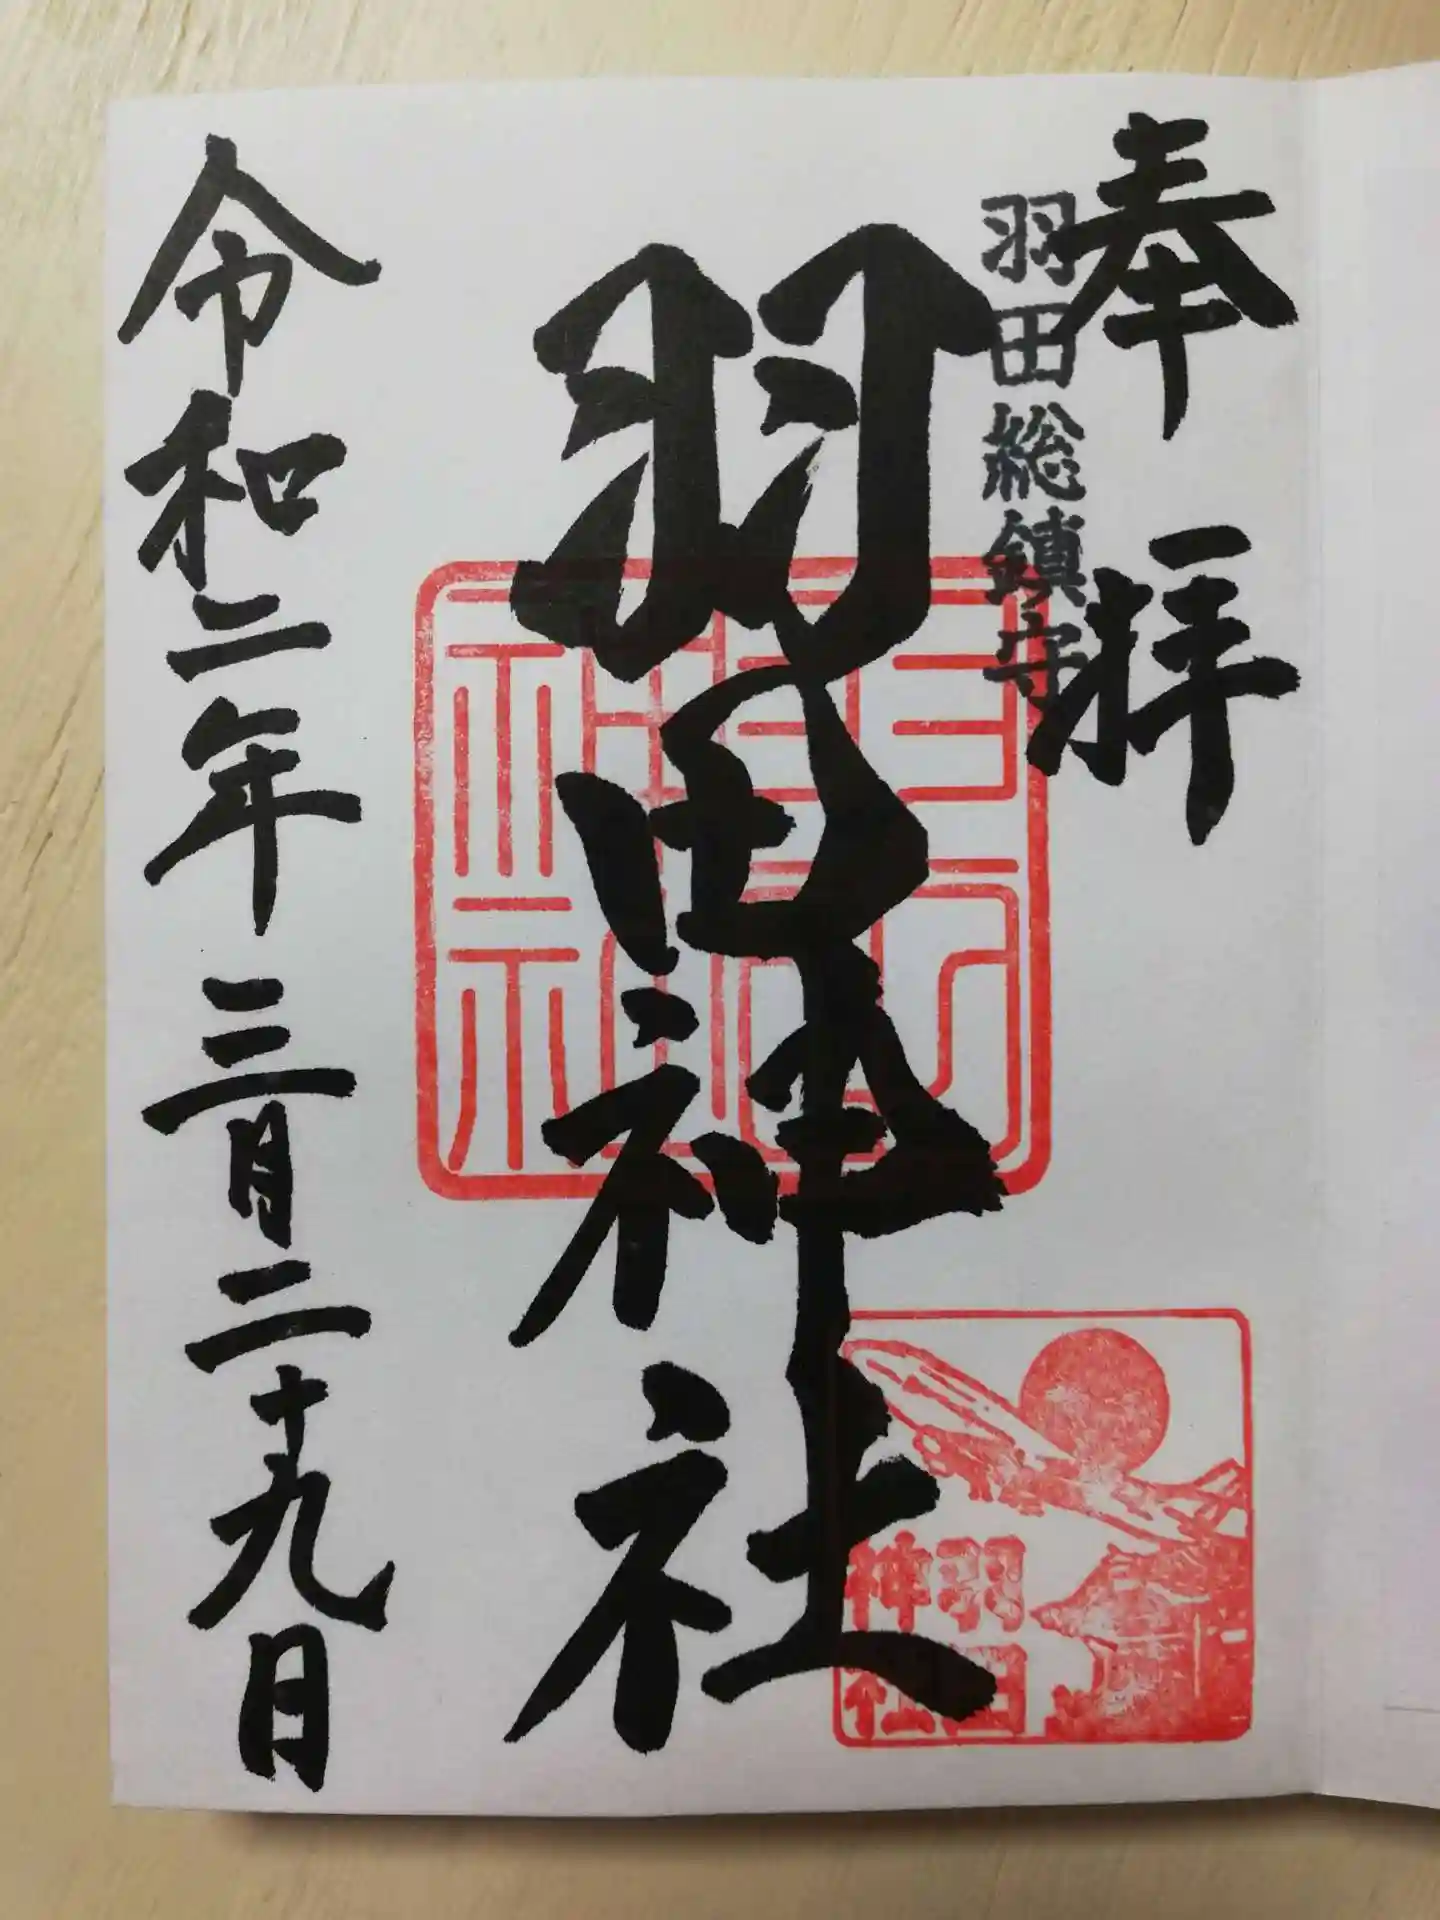 奉拝
羽田総鎮守
羽田神社
羽田
神社
令和二年三月二十九日